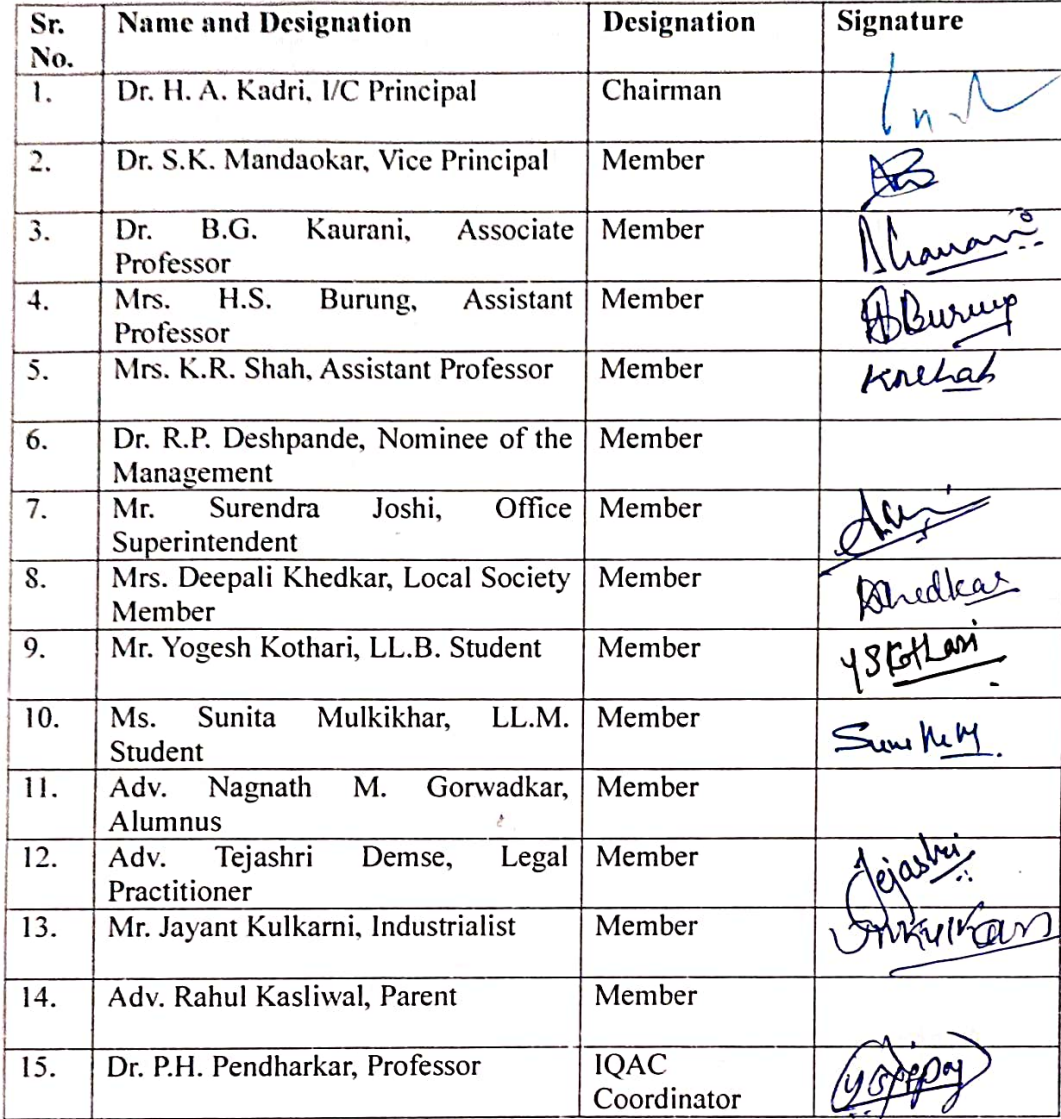 Sr. Name and Designation Designation Signature
No.
1. Dr. H. A. Kadri, I/C Principal Chairman
2. Dr. S.K. Mandaokar, Vice Principal Member
3. Dr. B.G. Kaurani, Associate Member
Professor
4. Mrs. H.S. Burung, Assistant Member HBurung
Professor
5. Mrs. K.R. Shah, Assistant Professor Member KRShah
6. Dr. R.P. Deshpande, Nominee of the Member
Management
7. Mr. Surendra Joshi, Office Member
Superintendent
8. Mrs. Deepali Khedkar, Local Society Member DKhedkar
Member
9. Mr. Yogesh Kothari, LL.B. Student Member YSKothari
10. Ms. Sunita Mulkikhar, LL.M. Member
Student
11. Adv. Nagnath M. Gorwadkar, Member
Alumnus
12. Adv. Tejashri Demse, Legal Member Tejashri
Practitioner
13. Mr. Jayant Kulkarni, Industrialist Member
14. Adv. Rahul Kasliwal, Parent Member
15. Dr. P.H. Pendharkar, Professor IQAC
Coordinator